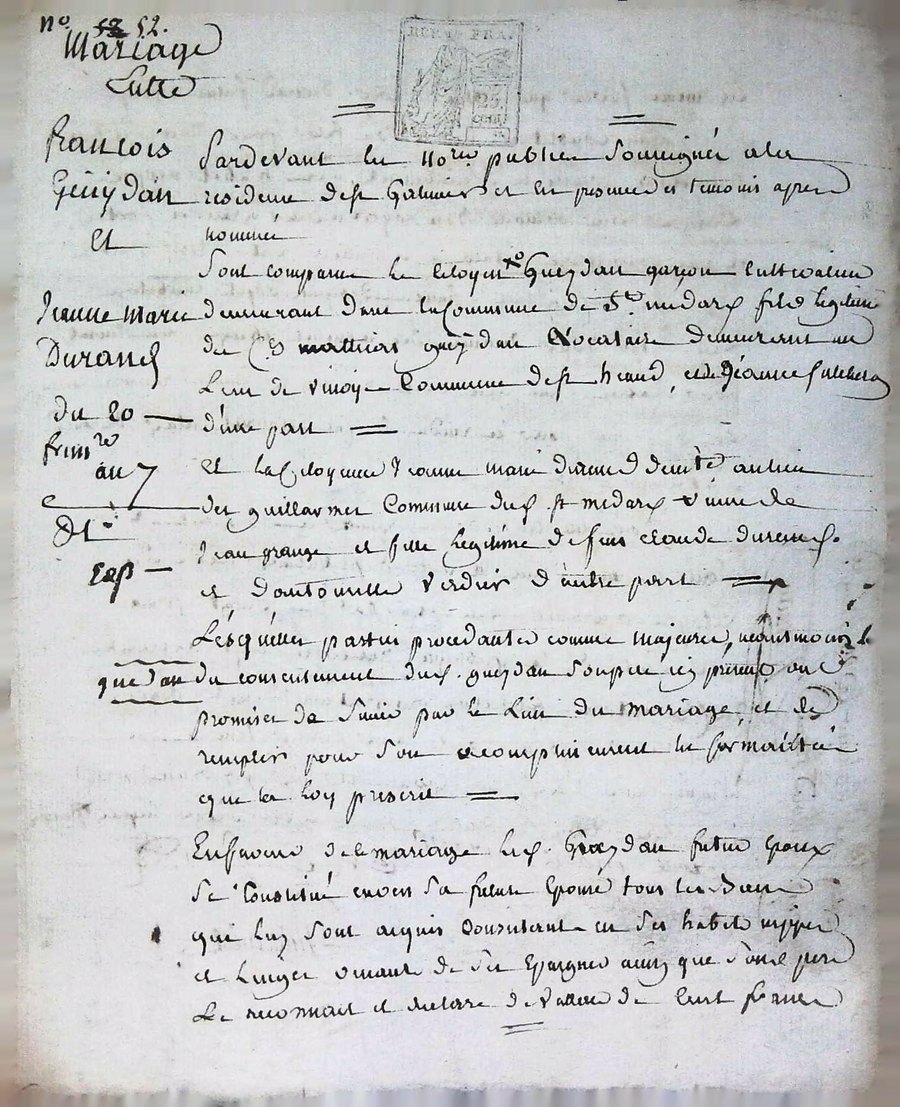 n.º 52.
Mariage
entre
francois
Gueÿdan
et
Jeanne Marie
Durand
du 20
frim.re
an 7
Exp
gueidan
Pardevant le no.re public soussigné a la
residence de st Galmier et en presence des temoins apres
nommés
Sont comparu le citoyen f.ois Gueydan garçon cultivateur
demeurant dans la Commune de St. medard fils legitime
de C. mathieu gueÿdan locataire demeurant au
Lieu de commune de st heand, et de Jeanne
d'une part
Et la Citoyenne Jeanne marie durand dem.te au lieu
des guillarmes Commune dud. st medard veuve de
Jean grange et fille legitime de feus claude durand
et d'antoinette verdier d'autre part
Lesquelles parties procedantes comme majeures, neanmoins le
du consentement dud. gueydan son pere icy present ont
promises de s'unir par le Lien du mariage, et de
remplir pour son accomplissement les formalités
que la Loy prescrit
En faveur de ce mariage led. Gueydan futur epoux
se Constitué envers sa future epouse tous les Biens
qui luy sont acquis consistant en ses habits nippes
et Linges venant de ses Epargnes ainsy que son d. pere
Le reconnait et declare de valleur de cent francs